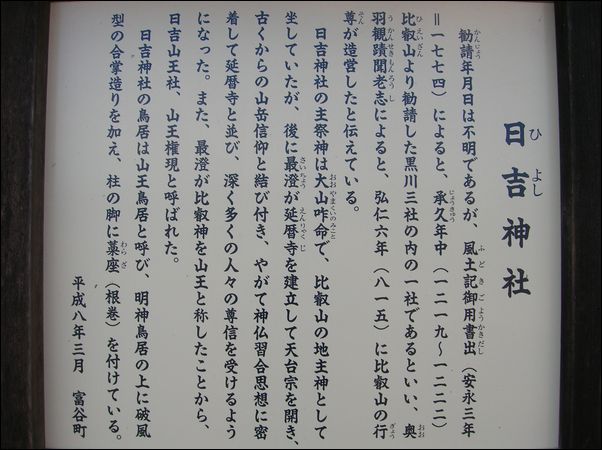 日吉神社
勧請年月日は不明であるが、風土記御用書出（安永三年
＝一七七四）によると、承久年中（一二一九〜一二二二）
比叡山より勧請した黒川三社の内の一社であるといい、奥
羽観蹟聞老志によると、弘仁六年（八一五）に比叡山の行
尊が造営したと伝えている。
日吉神社の主祭神は大山咋命で、比叡山の地主神として
坐していたが、後に最澄が延暦寺を建立して天台宗を開き、
古くからの山岳信仰と結び付き、やがて神仏習合思想に密
着して延暦寺と並び、深く多くの人々の尊信を受けるよう
になった。また、最澄が比叡神を山王と称したことから、
日吉山王社、山王権現と呼ばれた。
日吉神社の鳥居は山王鳥居と呼び、明神鳥居の上に破風
型の合掌造りを加え、柱の脚に藁座（根巻）を付けている。
平成八年三月　富谷町